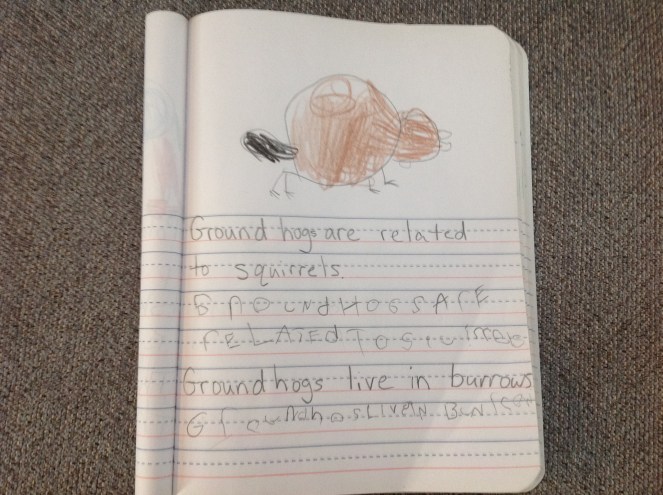 Groundhogs are related
to squirrels.
GrOUNdHOGSArE
rELATEDTOSqu
Groundhogs live in burrows
GroundhogsLiveIN